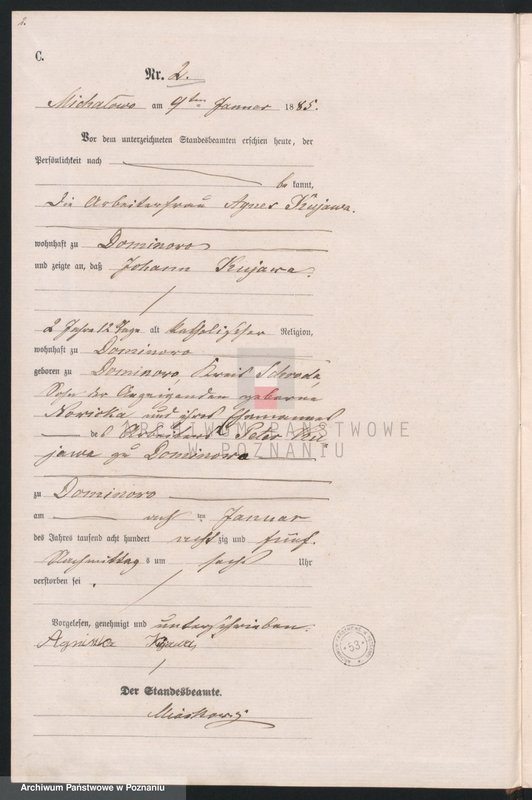 2.
C.
Nr. 2.
Michalowo am 9ten Januar 1885.
Vor dem unterzeichneten Standesbeamten erschien heute, der
Persönlichkeit nach
bekannt,
die Arbeiterfrau Agnes Kujawa.
wohnhaft zu Dominowo
und zeigte an, daß Johann Kujawa.
2 Jahre 12 Tage alt katholischer Religion,
wohnhaft zu Dominowo
geboren zu Dominowo Kreis Schroda,
Sohn der Anzeigenden geborene
Nowicka und ihres Ehemannes
des Arbeiters Peter Ku
jawa zu Dominowo
zu Dominowo
am acht ten Januar
des Jahres tausend acht hundert achtzig und fünf
Nachmittags um sechs Uhr
verstorben sei.
Vorgelesen, genehmigt und unterschrieben.
Agnieszka
Der Standesbeamte.
ARCHIWUM PAŃSTWOWE
W POZNANIU
53
Archiwum Państwowe w Poznaniu